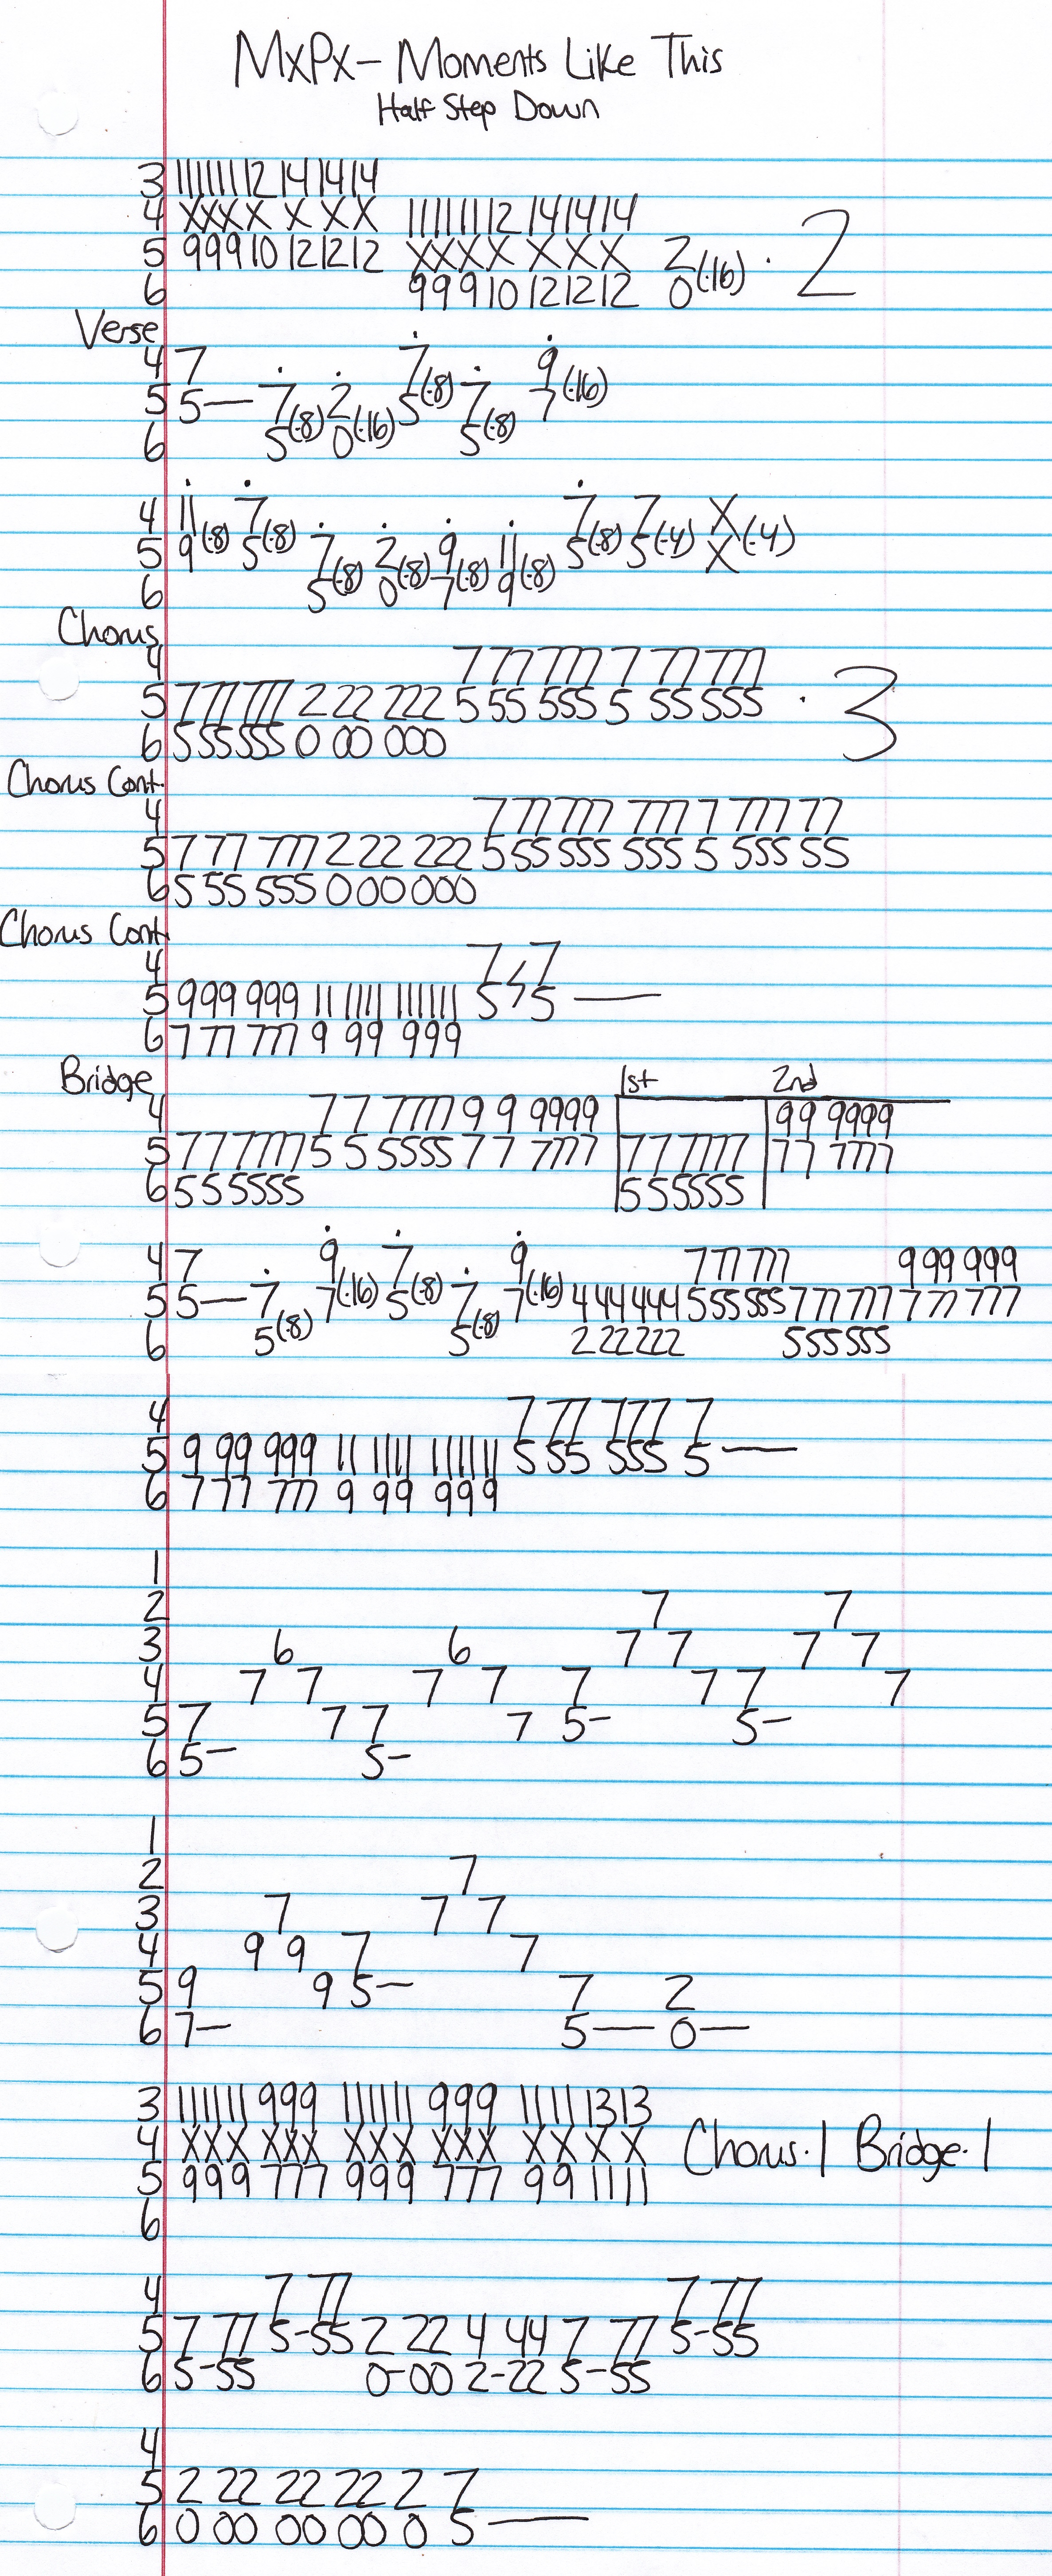 MxPx - Moments Like This
Half Step Down
3 11 11 11 12 14 14 14
4 X X X X X X X 11 11 11 12 14 14 14
5 9 9 9 10 12 12 12 X X X X X X X 2
6 9 9 9 10 12 12 12 0 (·16) · 2
Verse
4 7 7 9
5 5— 7 2 5(·8) 7 7(·16)
6 5(·8) 0(·16) 5(·8)
4 11 7 7 7 X
5 9(·8) 5(·8) 7 2 9 11 5(·8) 5(·4) X(·4)
6 5(·8) 0(·8) 7(·8) 9(·8)
Chorus
4 7 77 777 7 77 777
5 7 77 777 2 22 222 5 55 555 5 55 555 · 3
6 555555 0 00 000
Chorus Cont.
4 7 77 777 777 7 777 77
5 7 77 777 2 22 222 5 55 555 555 5 555 55
6 5 55 555 000000
Chorus Cont.
4 7 / 7
5 999 999 11 11 11 11 11 11 5 / 5 —
6 7 77 777 9 99 999
Bridge 1st 2nd
4 7 7 7777 9 9 9999 99 9999
5 777777 5 5 5555 7 7 7777 777777 77 7777
6 555555 555555
4 7 9 7 9 777 777 999 999
5 5— 7 7(·16) 5(·8) 7 7(·16) 444444 555 555 777 777 777 777
6 5(·8) 5(·8) 222222 555555
4 7 77 777 7
5 9 99 999 11 11 11 11 11 11 5 55 555 5—
6 7 77 777 9 99 999
1
2 7 7
3 6 6 7 7 7 7
4 7 7 7 7 7 7 7 7
5 7 7 7 7 5- 5-
6 5- 5-
1
2 7
3 7 7 7
4 9 9 7 7
5 9 9 5- 7 2
6 7- 5— 0—
3 11 11 11 9 9 9 11 11 11 9 9 9 11 11 13 13
4 X X X X X X X X X X X X X X X X Chorus·1 Bridge·1
5 9 9 9 7 7 7 9 9 9 7 7 7 9 9 11 11
6
4 7 77 7 77
5 7 77 5-55 2 22 4 44 7 77 5-55
6 5-55 0-00 2-22 5-55
4
5 2 22 22 22 2 7
6 0 00 00 00 0 5 —